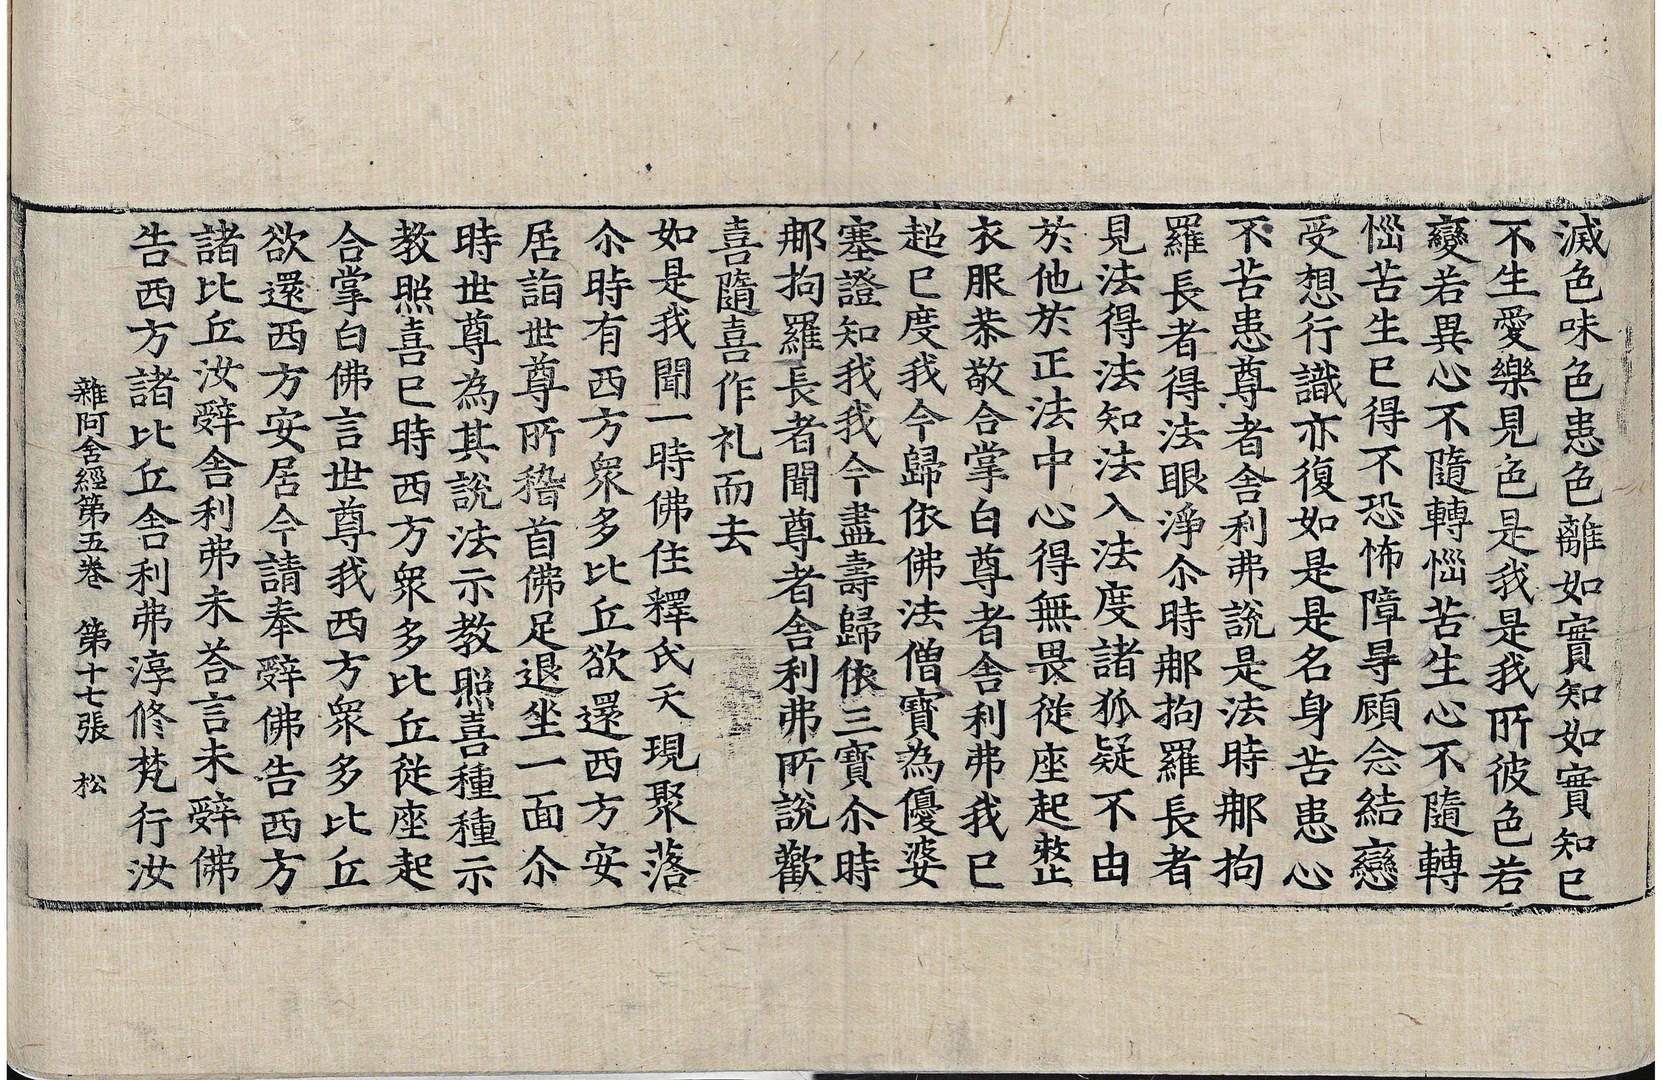 滅色味色患色離如實知如實知已
不生愛樂見色是我是我所彼色若
變若異心不隨轉惱苦生心不隨轉
惱苦生已得不恐怖障㝵顧念結戀
受想行識亦復如是是名身苦患心
不苦患尊者舍利弗說是法時那拘
羅長者得法眼淨尒時那拘羅長者
見法得法知法入法度諸狐疑不由
於他於正法中心得無畏從座起整
衣服恭敬合掌白尊者舍利弗我已
超已度我今歸依佛法僧寶為優婆
塞證知我我今盡壽歸依三寶尒時
那拘羅長者聞尊者舍利弗所說歡
喜隨喜作礼而去
如是我聞一時佛住釋氏天現聚落
尒時有西方眾多比丘欲還西方安
居詣世尊所稽首佛足退坐一面尒
時世尊為其說法示教照喜種種示
教照喜已時西方眾多比丘從座起
合掌白佛言世尊我西方眾多比丘
欲還西方安居今請奉辭佛告西方
諸比丘汝辭舍利弗未荅言未辭佛
告西方諸比丘舍利弗淳修梵行汝
雜阿含經第五卷　第十七張　松